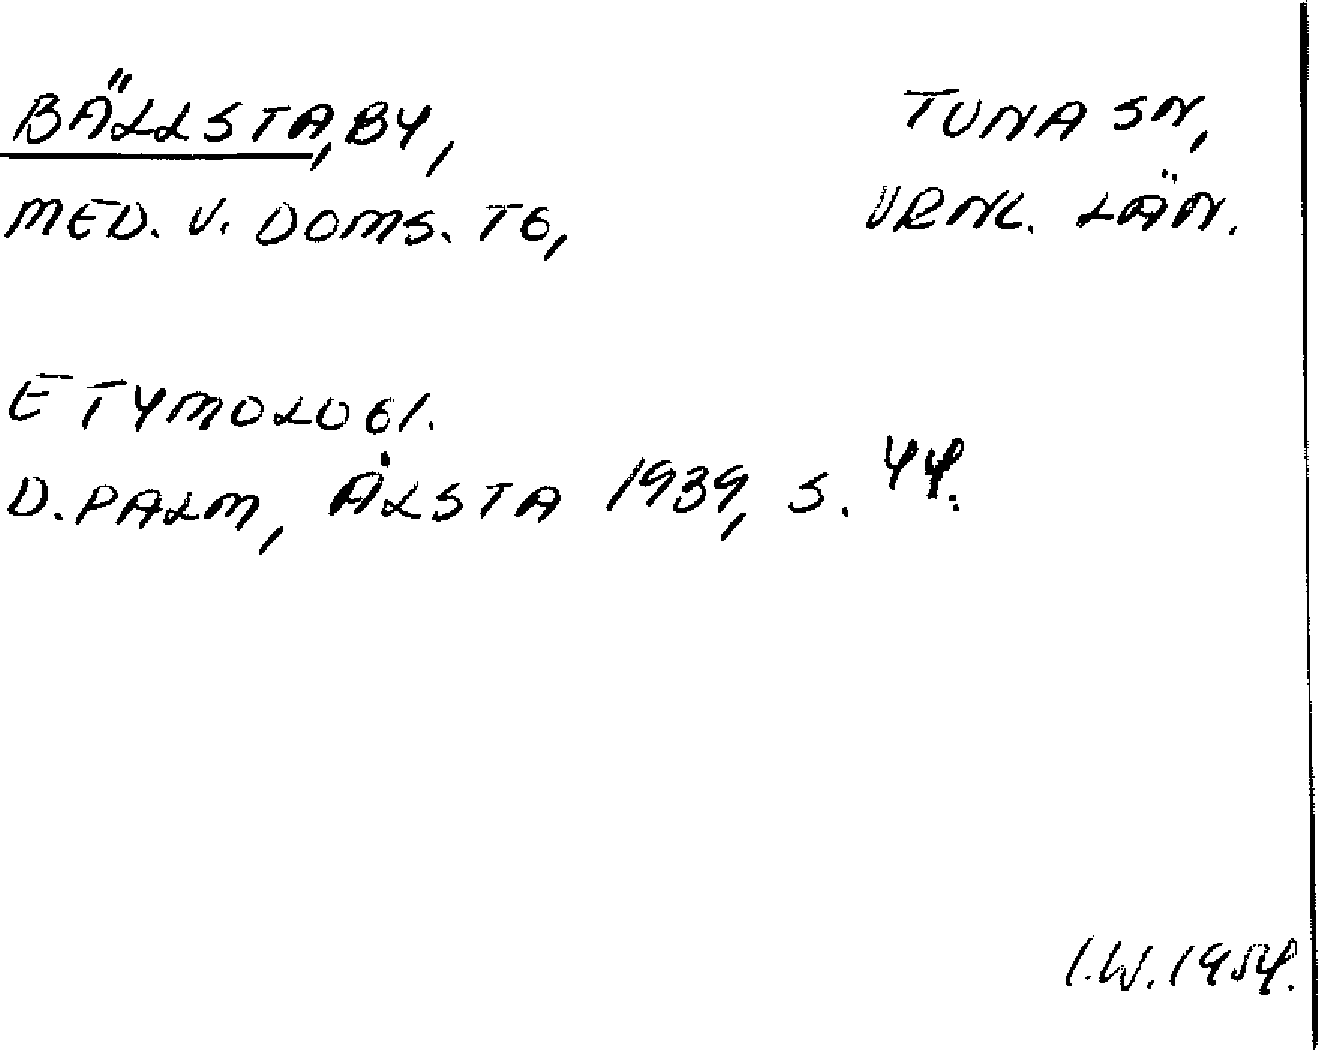 BÄLLSTA, BY, TUNA SN,
MED. V. DOMS. TG, VRNL. LÄN.
ETYMOLOGI.
D. PALM, ÄLSTA 1939, S. 44.
I.W. 1954.